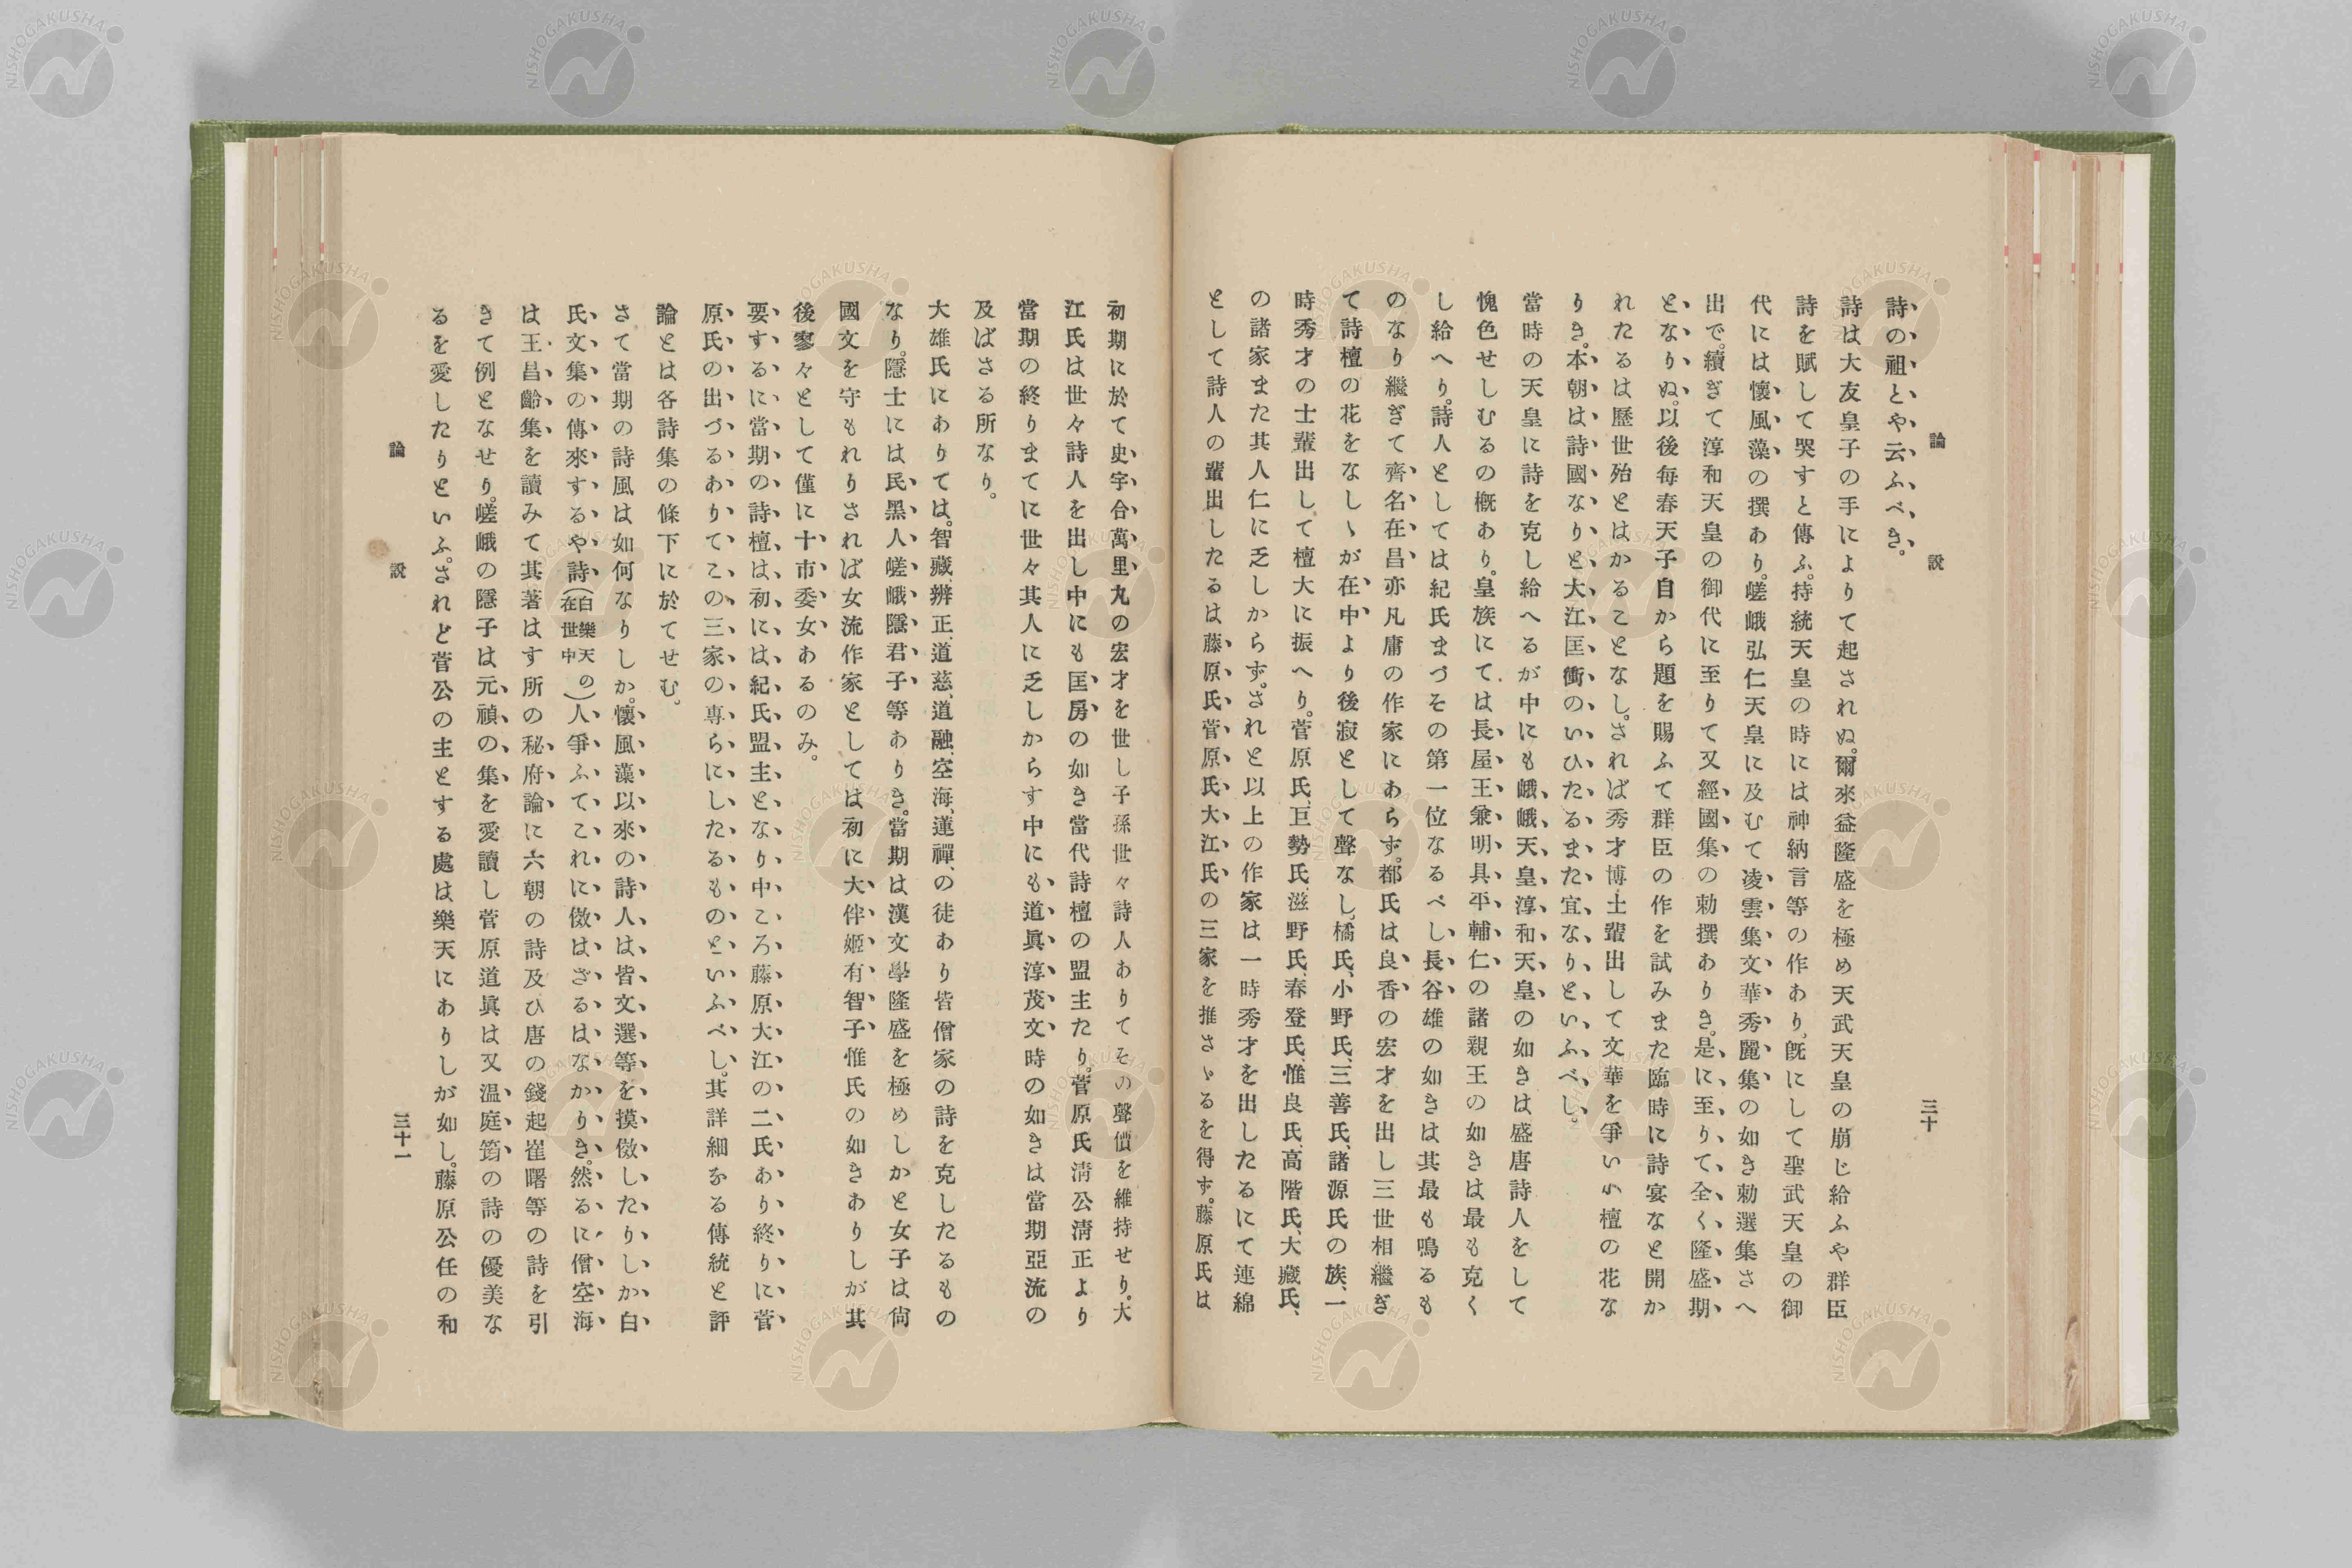 論說
三十
詩の祖とや云ふべき。
詩は大友皇子の手によりて起されぬ。爾來益隆盛を極め天武天皇の崩じ給ふや群臣
詩を賦して哭すと傳ふ。持統天皇の時には神納言等の作あり。旣にして聖武天皇の御
代には懷風藻の撰あり。嵯峨弘仁天皇に及むて凌雲集文華秀麗集の如き勅選集さへ
出で。續ぎて淳和天皇の御代に至りて又經國集の勅撰ありき。是に至りて全く隆盛期
となりぬ。以後每春天子自から題を賜ふて群臣の作を試みまた臨時に詩宴など開か
れたるは歷世殆とはかることなし。されば秀才博士輩出して文華を爭い小檀の花な
りき。本朝は詩國なりと大江匡衡のいひたるまた宜なりといふべし。
當時の天皇に詩を克し給へるが中にも峨峨天皇、淳和天皇の如きは盛唐詩人をして
愧色せしむるの槪あり。皇族にては長屋王兼明具平輔仁の諸親王の如きは最も克く
し給へり。詩人としては紀氏まづその第一位なるべし、長谷雄の如きは其最も鳴るも
のなり繼ぎて齊名在昌亦凡庸の作家にあらず。都氏は良香の宏才を出し三世相繼ぎ
て詩檀の花をなしゝが在中より後寂として聲なし。橘氏、小野氏、三善氏、諸源氏の族、一
時秀才の士輩出して檀大に振へり。菅原氏、巨勢氏、滋野氏、春登氏、惟良氏、高階氏、大藏氏、
の諸家また其人仁に乏しからず。されと以上の作家は一時秀才を出したるにて連綿
として詩人の輩出したるは藤原氏、菅原氏、大江氏の三家を推さゝるを得ず。藤原氏は
初期に於て史、宇合、萬里、九の宏才を世し子孫世々詩人ありてその聲價を維持せり。大
江氏は世々詩人を出し中にも匡房の如き當代詩檀の盟主たり。菅原氏淸公淸正より
當期の終りまてに世々其人に乏しからす中にも道眞、淳茂、文時の如きは當期亞流の
及ばさる所なり。
大雄氏にありては。智藏、辨正、道慈、道融、空海、蓮禪、の徒あり皆僧家の詩を克したるもの
なり。隱士には民黑人、嵯峨隱君子等ありき。當期は漢文學隆盛を極めしかと女子は尙
國文を守もれりされば女流作家としては初に大伴姬、有智子、惟氏の如きありしが其
後寥々として僅に十市委女あるのみ。
要するに當期の詩檀、は初には紀氏盟主となり中ころ藤原大江の二氏あり終りに菅
原氏の出づるありてこの三家の專らにしたるものといふべし。其詳細なる傳統と評
論とは各詩集の條下に於てせむ。
さて當期の詩風は如何なりしか。懷風藻以來の詩人は皆文選等を摸倣したりしか白
氏文集の傳來するや詩（白樂天の在世中）人爭ふてこれに倣はざるはなかりき。然るに僧空海
は王昌齡集を讀みて其著はす所の秘府論に六朝の詩及ひ唐の錢起崔曙等の詩を引
きて例となせり。嵯峨の隱子は元禎の集を愛讀し菅原道眞は又溫庭筠の詩の優美な
るを愛したりといふ。されど菅公の主とする處は樂天にありしが如し。藤原公任の和
論說
三十一